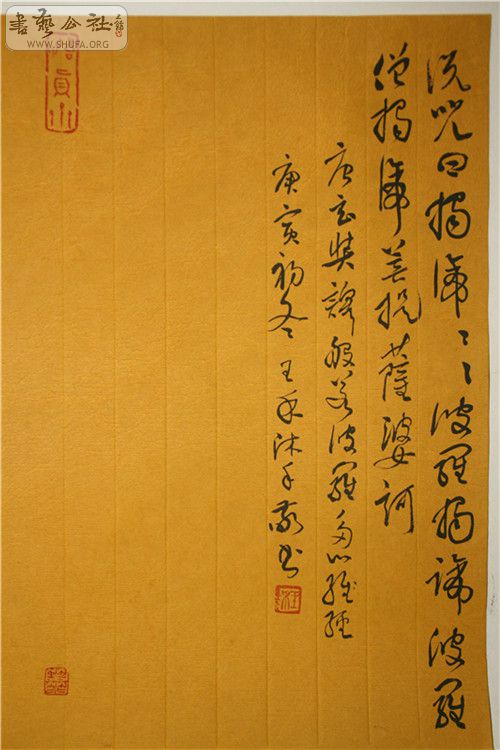 書藝公社
WWW.SHUFA.ORG
说呪曰揭谛〻〻波羅揭諦波羅
僧揭谛菩提薩婆訶
唐玄奘譯般若波羅多心經
庚寅初冬王沐手敬书